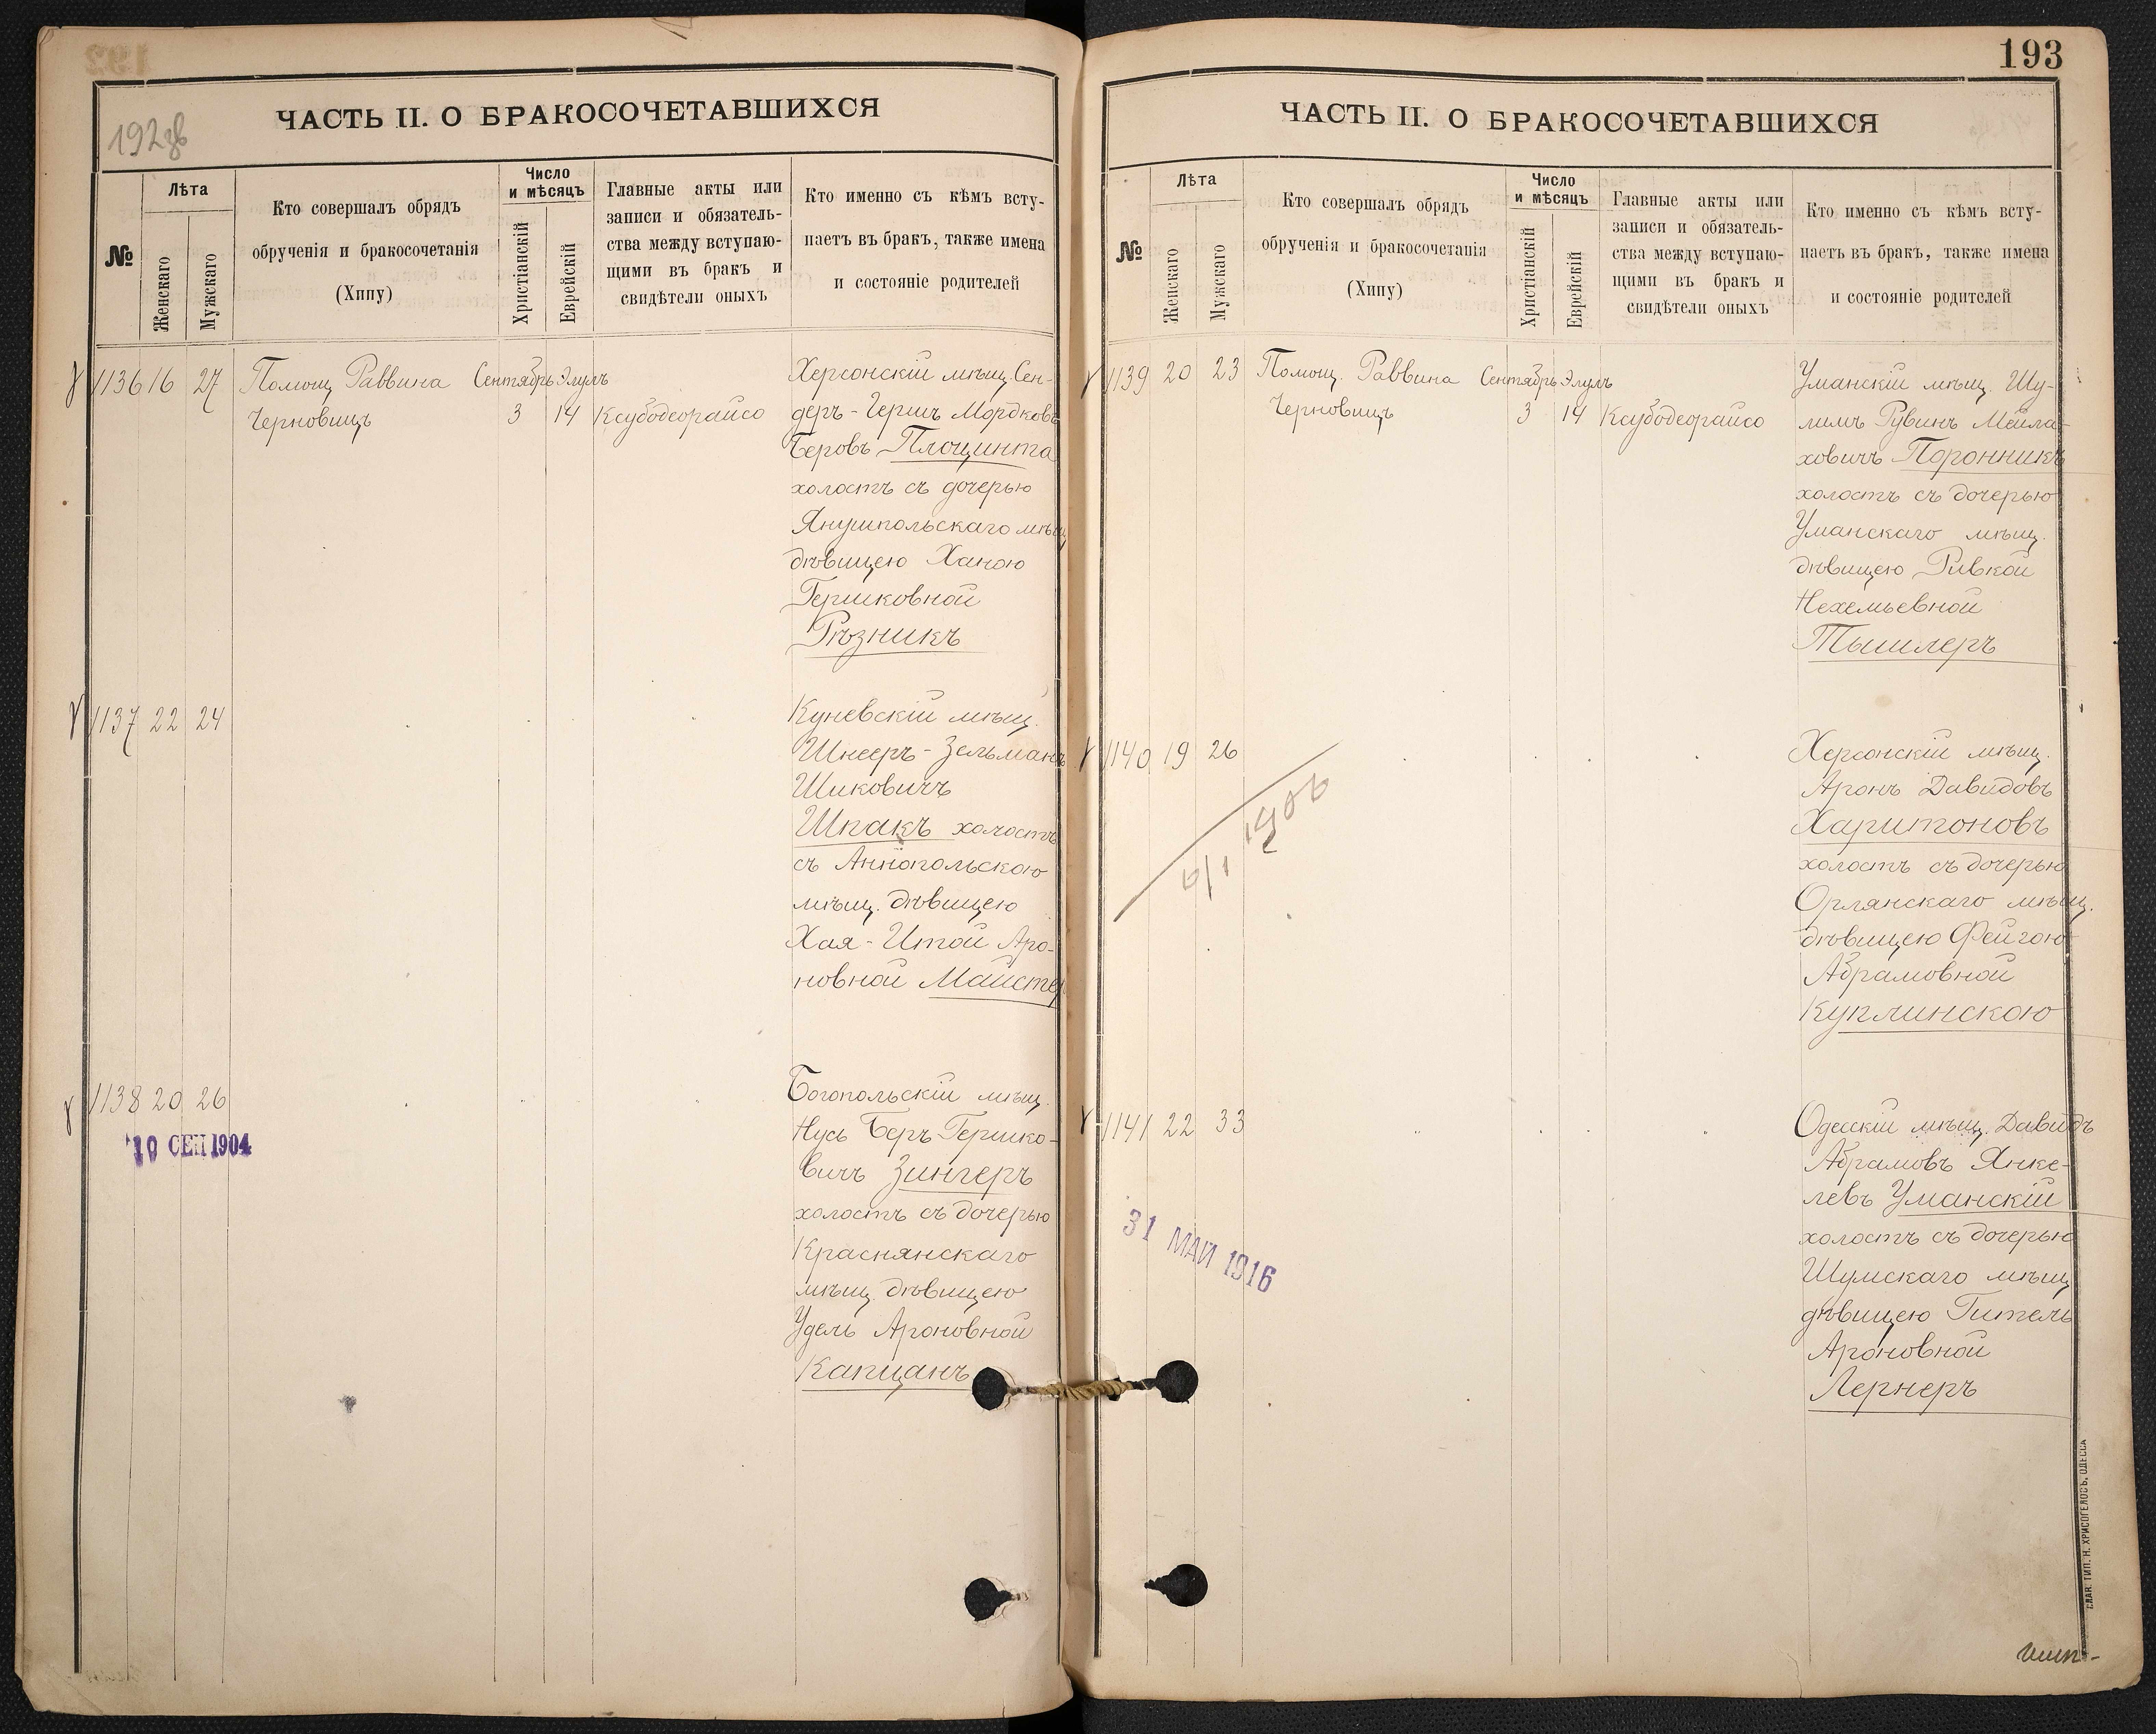 192зв
ЧАСТЬ II. О БРАКОСОЧЕТАВШИХСЯ
№
Лѣта
Женскаго
Мужскаго
Кто совершалъ обрядъ
обрученія и бракосочетанія
(Хипу)
Число
и мѣсяцъ
Христіанскій
Еврейскій
Главные акты или
записи и обязатель-
ства между вступаю-
щими въ бракъ и
свидѣтели оныхъ
Кто именно съ кѣмъ всту-
паетъ въ бракъ, также имена
и состояніе родителей
1136 16 27 Помощ Раввина Сентябрь Элулъ Херсонскій мѣщ. Сен-
Черновицъ 3 14 Ксубодеорайсо деръ-Гершъ Мордковъ
Беровъ Площинта
холостъ съ дочерью
Янушпольскаго мѣщ
дѣвицею Ханою
Гершковной
Рѣзникъ
1137 22 24 Куневскій мѣщ.
Шнееръ-Зельманъ
Шиковичъ
Шпакъ холостъ
съ Аннопольскою
мѣщ. дѣвицею
Хая-Итой Аро-
новной Майстер
1138 20 26 Богопольскій мѣщ.
10 СЕН 1904
Нусь Беръ Гершко-
вичъ Зингеръ
холостъ съ дочерью
Краснянскаго
мѣщ. дѣвицею
Удель Ароновной
Капцанъ
193
ЧАСТЬ II. О БРАКОСОЧЕТАВШИХСЯ
№
Лѣта
Женскаго
Мужскаго
Кто совершалъ обрядъ
обрученія и бракосочетанія
(Хипу)
Число
и мѣсяцъ
Христіанскій
Еврейскій
Главные акты или
записи и обязатель-
ства между вступаю-
щими въ бракъ и
свидѣтели оныхъ
Кто именно съ кѣмъ всту-
паетъ въ бракъ, также имена
и состояніе родителей
1139 20 23 Помощ. Раввина Сентябрь Элулъ Уманскій мѣщ. Шу-
Черновицъ 3 14 Ксубодеорайсо лимъ Рувинъ Мейла-
ховичъ Поронникъ
холостъ съ дочерью
Уманскаго мѣщ.
дѣвицею Ривкой
Нехемьевной
Тышлеръ
1140 19 26 Херсонскій мѣщ.
Аронъ Давидовъ
Харитоновъ
холостъ съ дочерью
Орлянскаго мѣщ.
дѣвицею Фейгою
Абрамовной
Куплинскою
6/1 1906
1141 22 33 Одесскій мѣщ. Давидъ
Абрамовъ Янке-
левъ Уманскій
холостъ съ дочерью
Шумскаго мѣщ
дѣвицею Гитель
Ароновной
Лернеръ
31 МАЙ 1916
ГЛАВ. ТИП. Н. ХРИСОГЕЛОСЪ, ОДЕССА